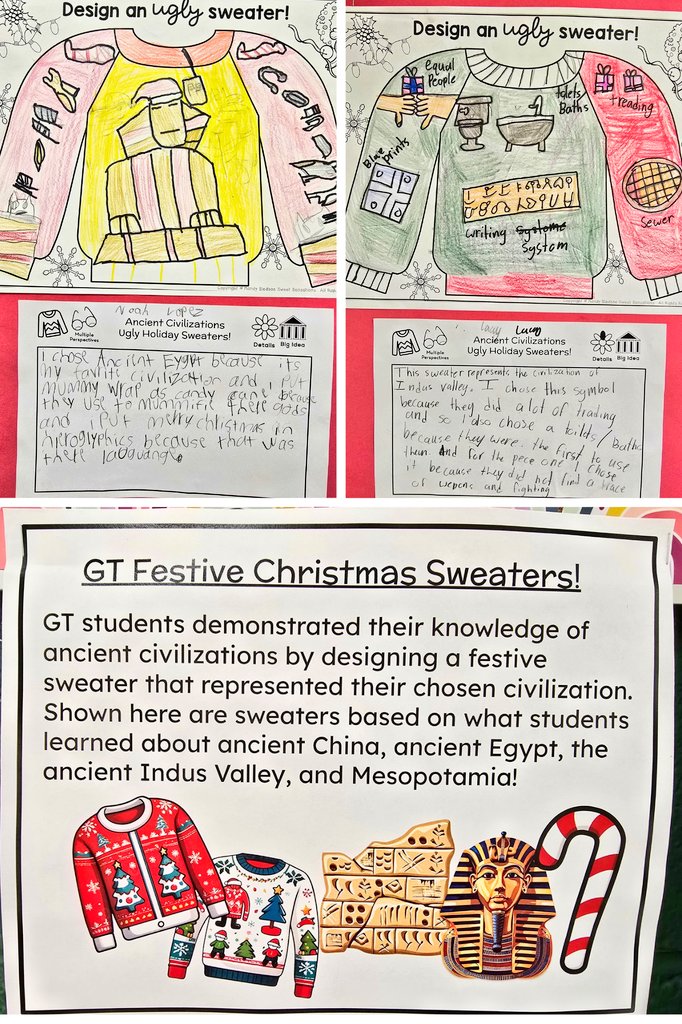 Design an ugly sweater!
Noah Lopez
Multiple
Perspectives
Ancient Civilizations
Ugly Holiday Sweaters!
Details
Big Idea
I chose Ancient Eygpt because its
my favite civilization and i put
mummy wrap as candy cane because
they use to mummifie there gods
and i put merry christmas in
hieroglyphics because that was
there laguange.
Design an ugly sweater!
equal
People
toilets
Baths
trading
Blue
prints
sewer
writing systeme
System
Lucy
Multiple
Perspectives
Ancient Civilizations
Ugly Holiday Sweaters!
Details
Big Idea
This sweater represents the civilization of
Indus valley. I chose this symbol
because they did a lot of trading
and so I also chose a toilets / Baths
because they were the first to use
them. And for the pece one I chose
it because they did not find a trace
of wepons and fighting
GT Festive Christmas Sweaters!
GT students demonstrated their knowledge of
ancient civilizations by designing a festive
sweater that represented their chosen civilization.
Shown here are sweaters based on what students
learned about ancient China, ancient Egypt, the
ancient Indus Valley, and Mesopotamia!